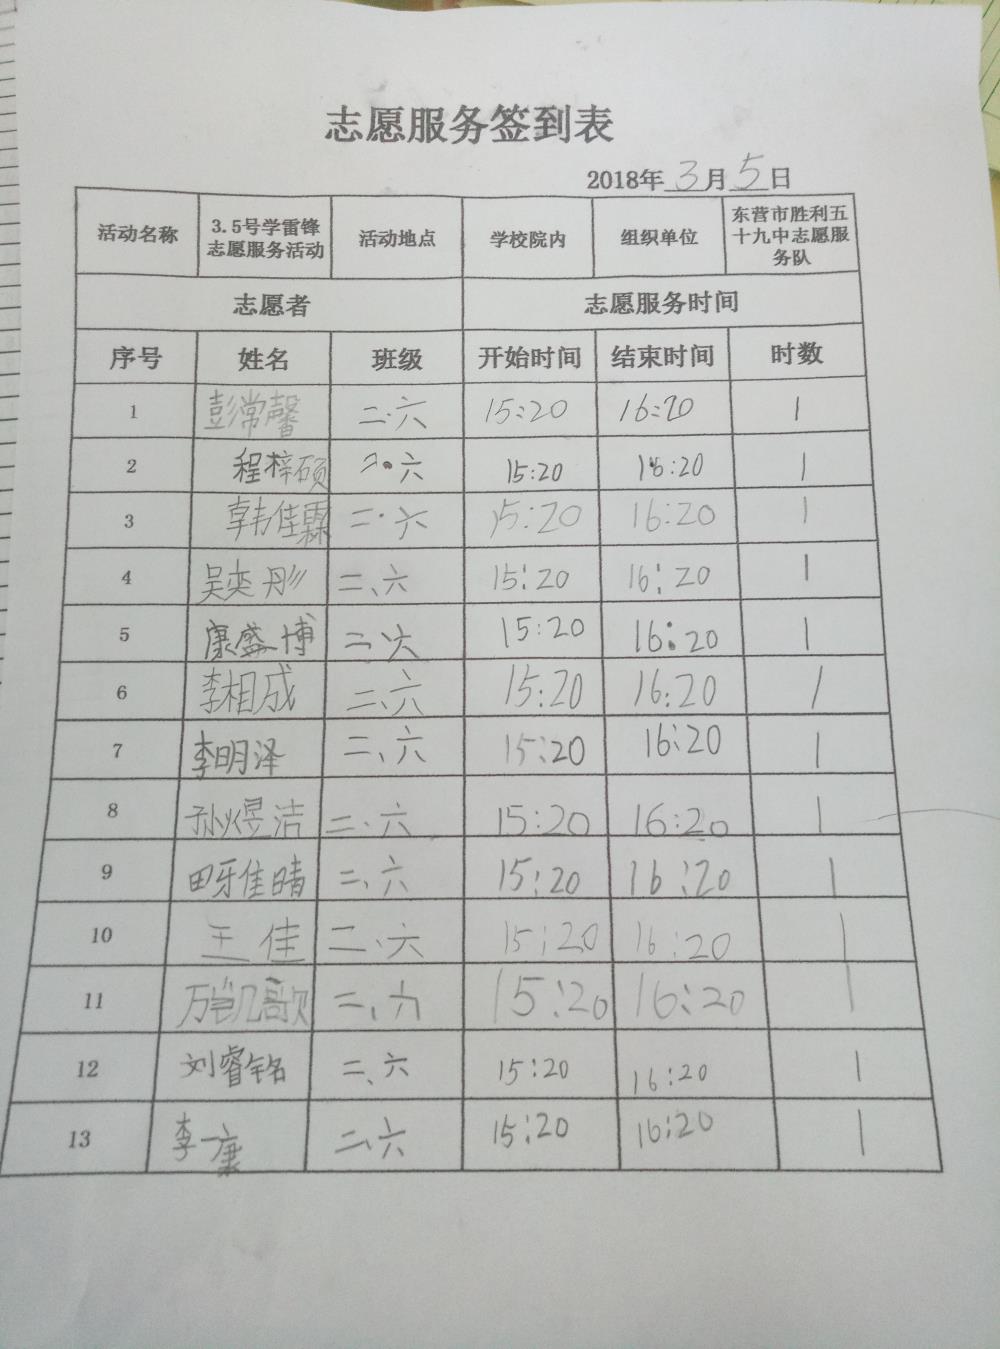 志愿服务签到表
2018年 3 月 5 日
活动名称 3.5号学雷锋志愿服务活动 活动地点 学校院内 组织单位 东营市胜利五十九中志愿服务队
志愿者 志愿服务时间
序号 姓名 班级 开始时间 结束时间 时数
1 彭常馨 二.六 15:20 16:20 1
2 程梓硕 二.六 15:20 16:20 1
3 韩佳霖 二.六 15:20 16:20 1
4 吴奕彤 二、六 15:20 16:20 1
5 康盛博 二、六 15:20 16:20 1
6 李相成 二、六 15:20 16:20 1
7 李明泽 二、六 15:20 16:20 1
8 孙煜洁 二、六 15:20 16:20 1
9 田佳晴 二、六 15:20 16:20 1
10 王佳 二、六 15:20 16:20 1
11 万凯歌 二、六 15:20 16:20 1
12 刘睿铭 二、六 15:20 16:20 1
13 李一康 二、六 15:20 16:20 1